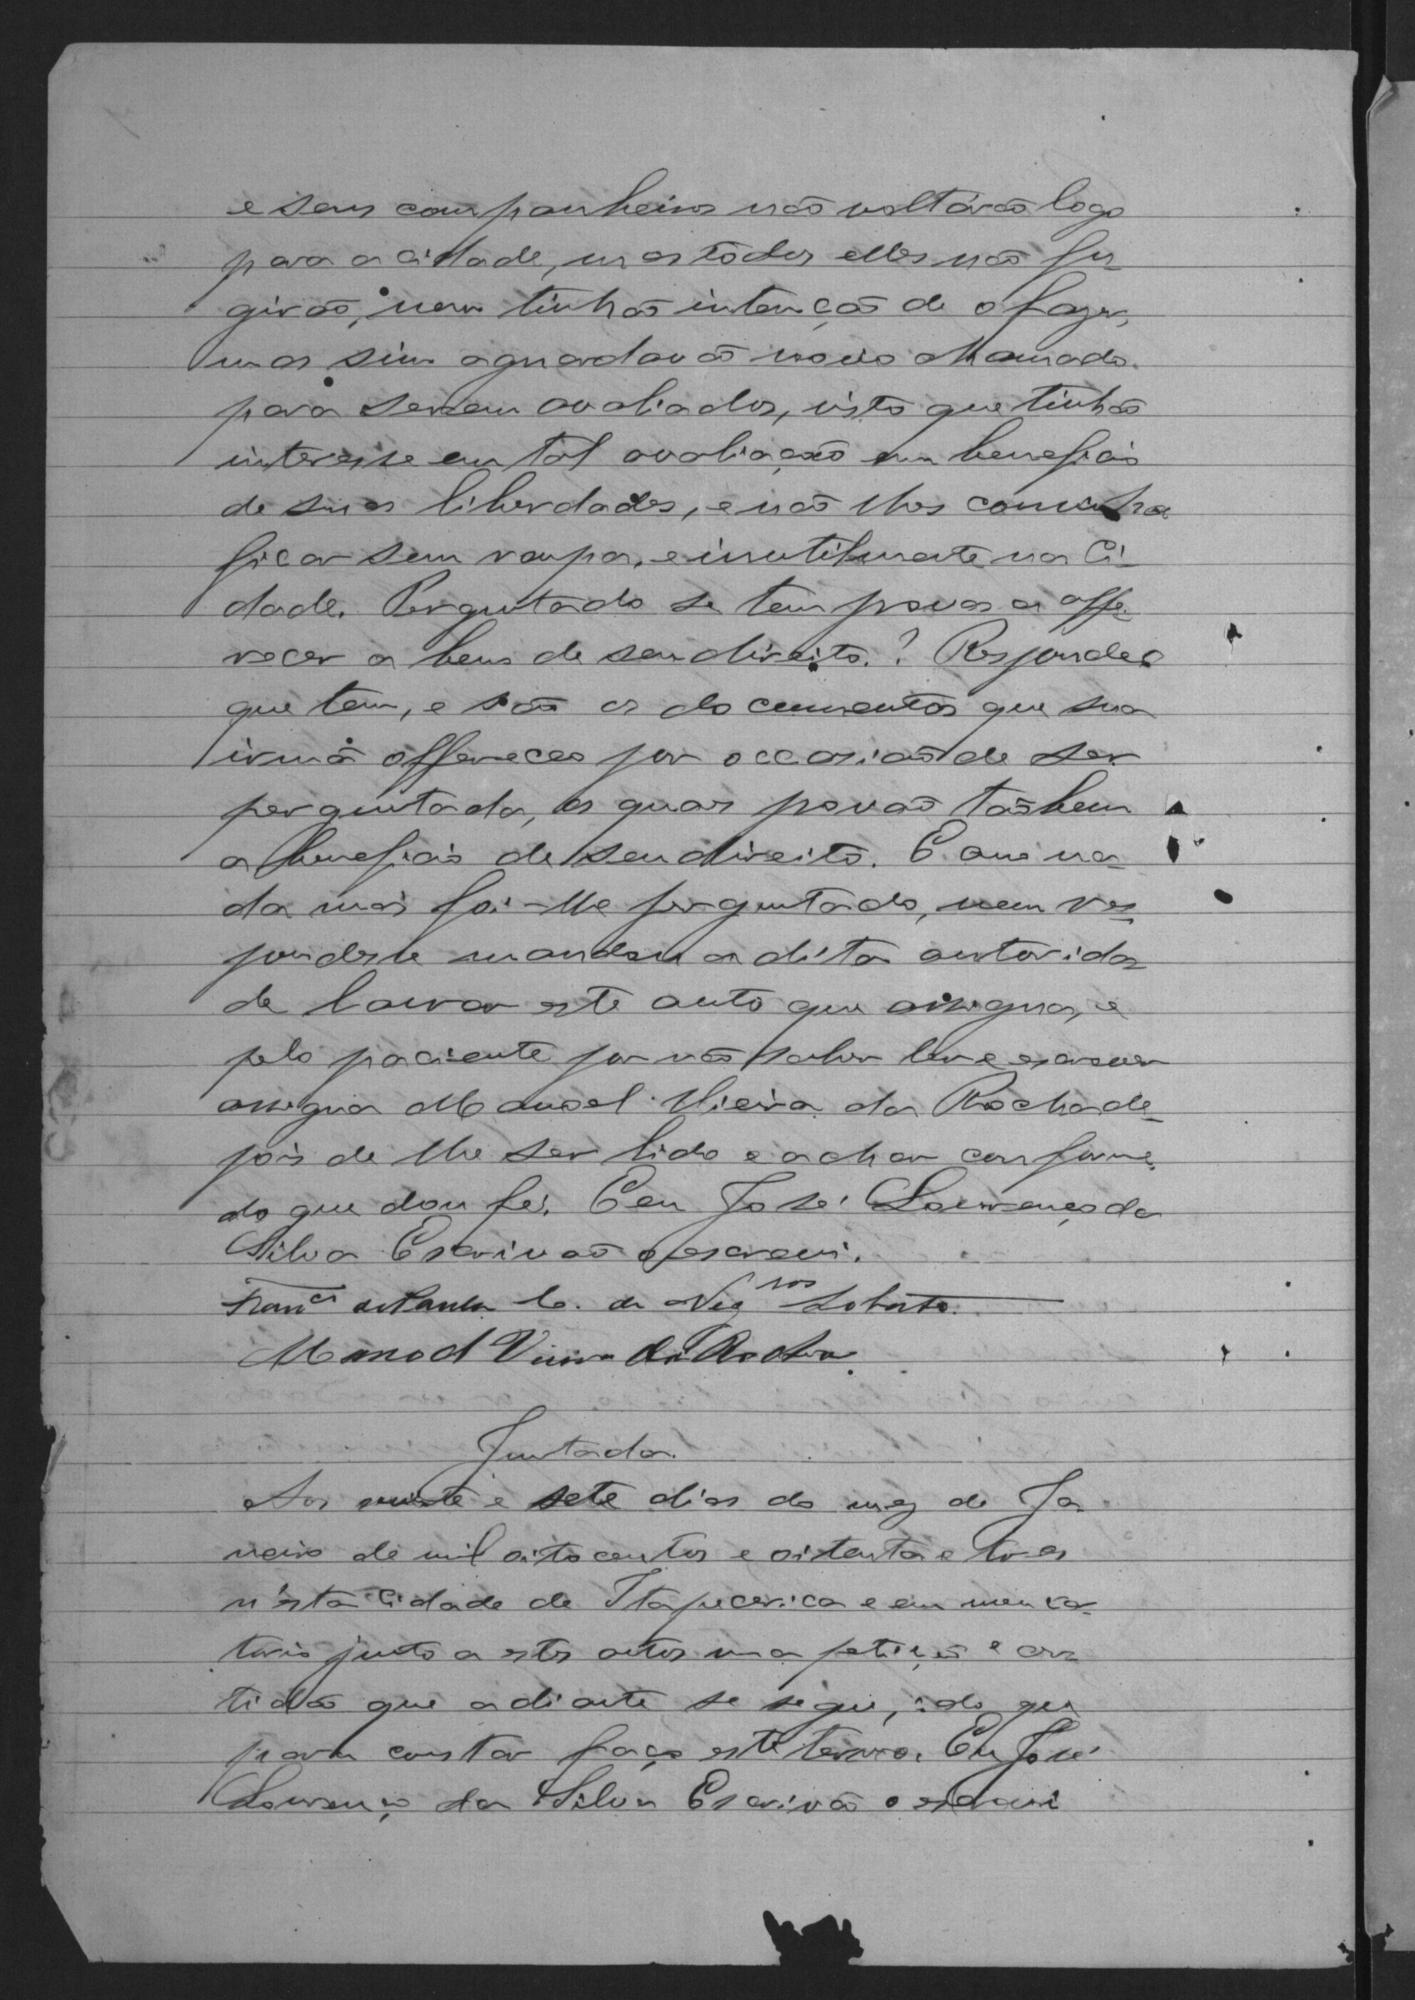 e seus companheiros não voltárão logo
para a cidade, mas tôdos elles não fu-
girão, nem tinhão intenção de o fazer,
mas sim aguardavão novo chamado
para serem avaliados, visto que tinhão
interesse em tal avaliação em beneficio
de suas liberdades, e não lhes convinha
ficar sem roupa, e inutilmente na Ci-
dade. Perguntado se tem provas a offe-
recer a bem de seu direito.? Respondeo
que tem, e são os documentos que sua
irmã offereceo por occasião de ser
perguntada, os quaes provão tãobem
a beneficio de seu direito. E que na-
da mais foi-lhe perguntado, nem res-
pondeste mandou a dita autorida-
de lavrar este auto que assigna, e
pelo paciente por não saber ler e escrever
assigna Manoel Vieira da Rocha de-
pois de lhe ser lido e achar conforme,
do que dou fé. E eu José Lourenço da
Silva Escrivão o escrevi.
Franc.co de Paula C. de Neg.ros Lobato.
Manoel Vieira da Rocha.
Juntada.
Aos vinte e sete dias do mez de Ja-
neiro de mil oitocentos e oitenta e tres
n'esta Cidade de Itapecerica e em meu car-
torio junto a estes autos uma petição e cer-
tidão que adiante se segue, do que
para constar faço este termo. Eu José
Lourenço da Silva Escrivão o escrevi